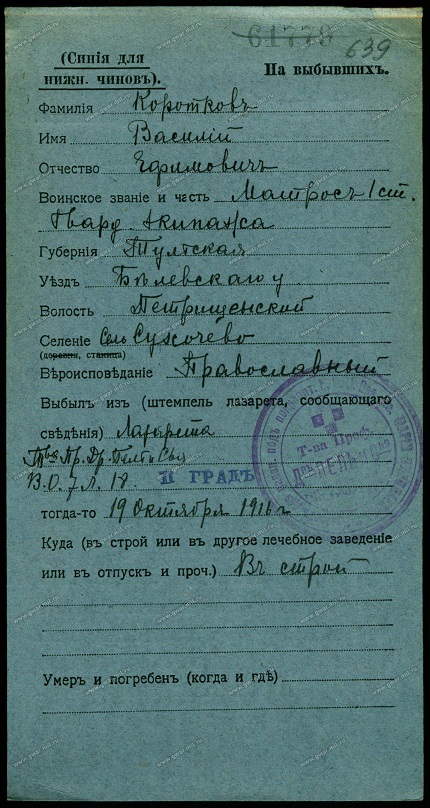 61779
639
(Синія для
нижн. чиновъ).
На выбывшихъ.
Фамилія Коротковъ
Имя Василій
Отчество Ефимовичъ
Воинское званіе и часть Матросъ 1 ст.
Гвард. экипажа
Губернія Тульская
Уѣздъ Бѣлевскаго у
Волость Петрищенской
Селеніе Село Сухочево
(деревня, станица)
Вѣроисповѣданіе Православный
Выбылъ изъ (штемпель лазарета, сообщающаго
свѣдѣнія) Лазарета
Т-ва Пр. Др.
В.О. 7 л. 18.
П ГРАДЪ
Т-ва Проф.
тогда-то 19 Октября 1916 г
Куда (въ строй или въ другое лечебное заведеніе
или въ отпускъ и проч.) Въ строй
Умеръ и погребенъ (когда и гдѣ)
www.gwar.mil.ru